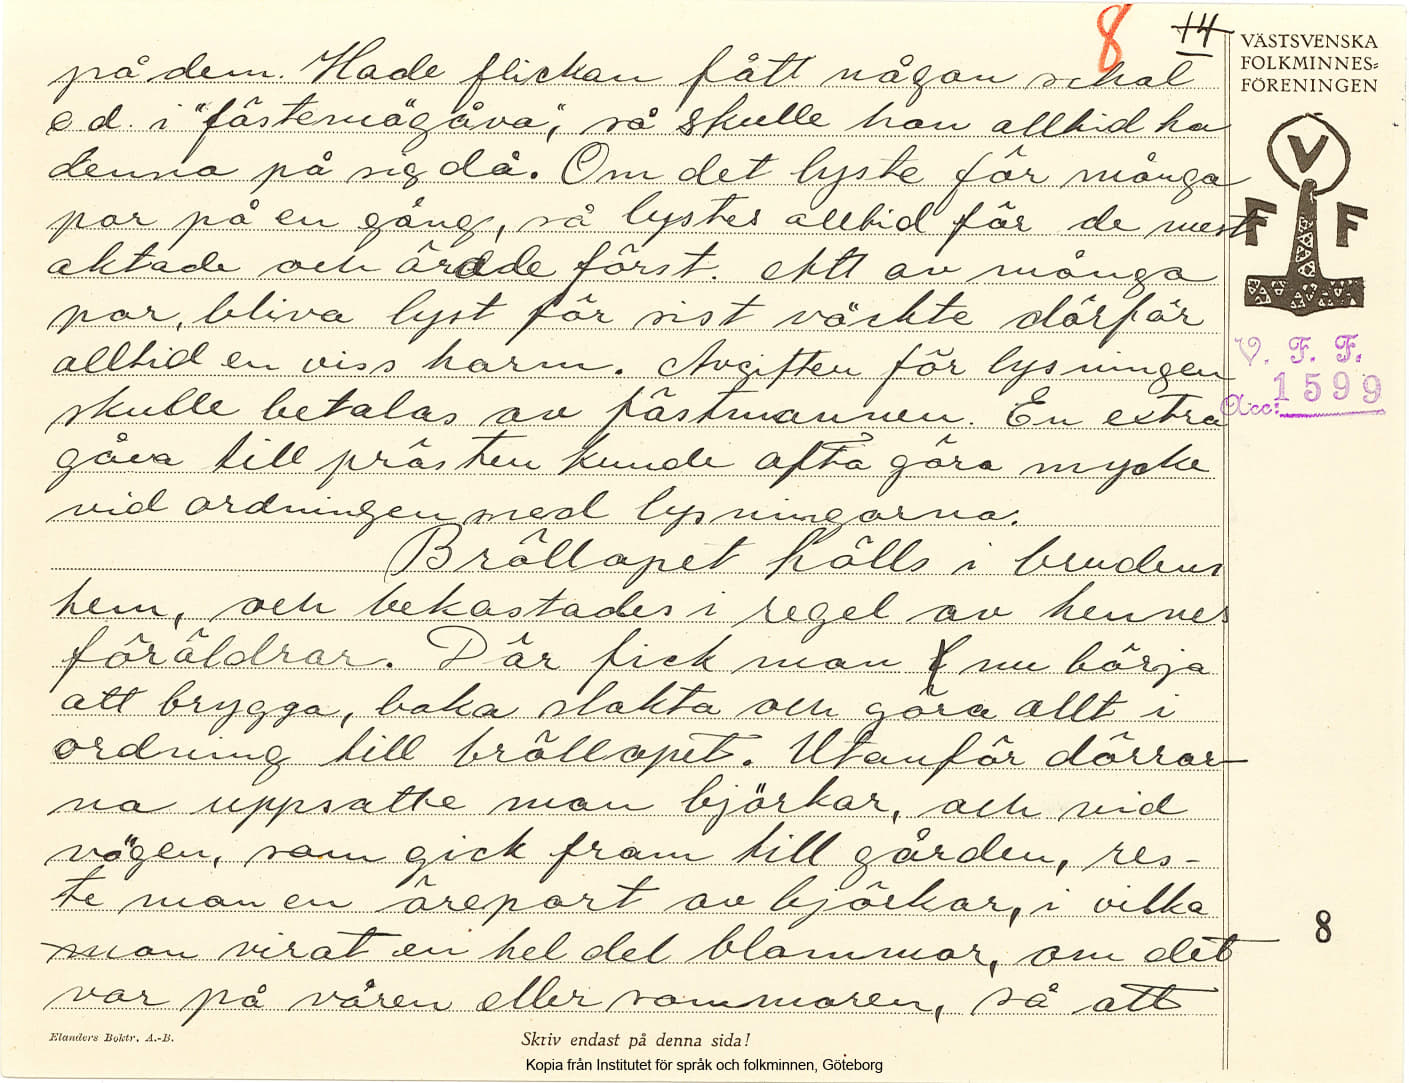 8 14
VÄSTSVENSKA
FOLKMINNES=
FÖRENINGEN
V
F F
V. F. F.
Acc: 1599
på dem. Hade flickan fått någon schal
e.d. i "fästemögåva", så skulle hon alltid ha
denna på sig då. Om det lyste för många
par på en gång, så lystes alltid för de mest
aktade och ärade först. Att av många
par, bliva lyst för sist väckte därför
alltid en viss harm. Avgiften för lysningen
skulle betalas av fästmannen. En extra
gåva till prästen kunde ofta göra mycke
vid ordningen med lysningarna.
Bröllopet hölls i brudens
hem, och bekostades i regel av hennes
föräldrar. Där fick man nu börja
att brygga, baka slakta och göra allt i
ordning till bröllopet. Utanför dörrar-
na uppsatte man björkar, och vid
vägen, som gick fram till gården, res-
te man en äreport av björkar, i vilka
man virat en hel del blommor, om det
var på våren eller sommaren, så att
8
Elanders Boktr. A.-B.
Skriv endast på denna sida!
Kopia från Institutet för språk och folkminnen, Göteborg